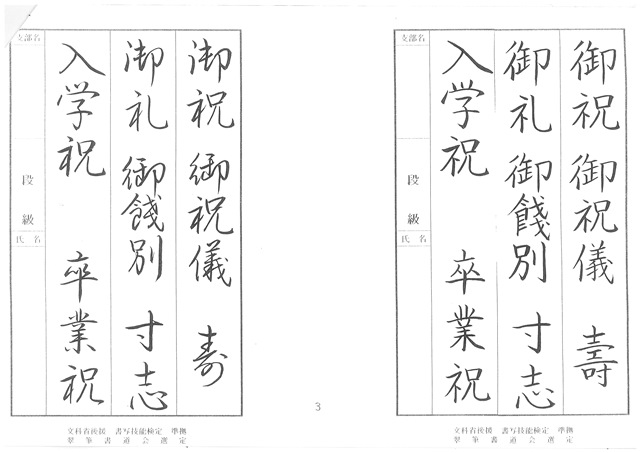 御祝 御祝儀 壽
御礼 御餞別 寸志
入学祝 卒業祝
支部名
段
級
氏名
文科省後援 書写技能検定 準拠
翠筆書道会選定
御祝 御祝儀 寿
御礼 御餞別 寸志
入学祝 卒業祝
支部名
段
級
氏名
文科省後援 書写技能検定 準拠
翠筆書道会選定
3